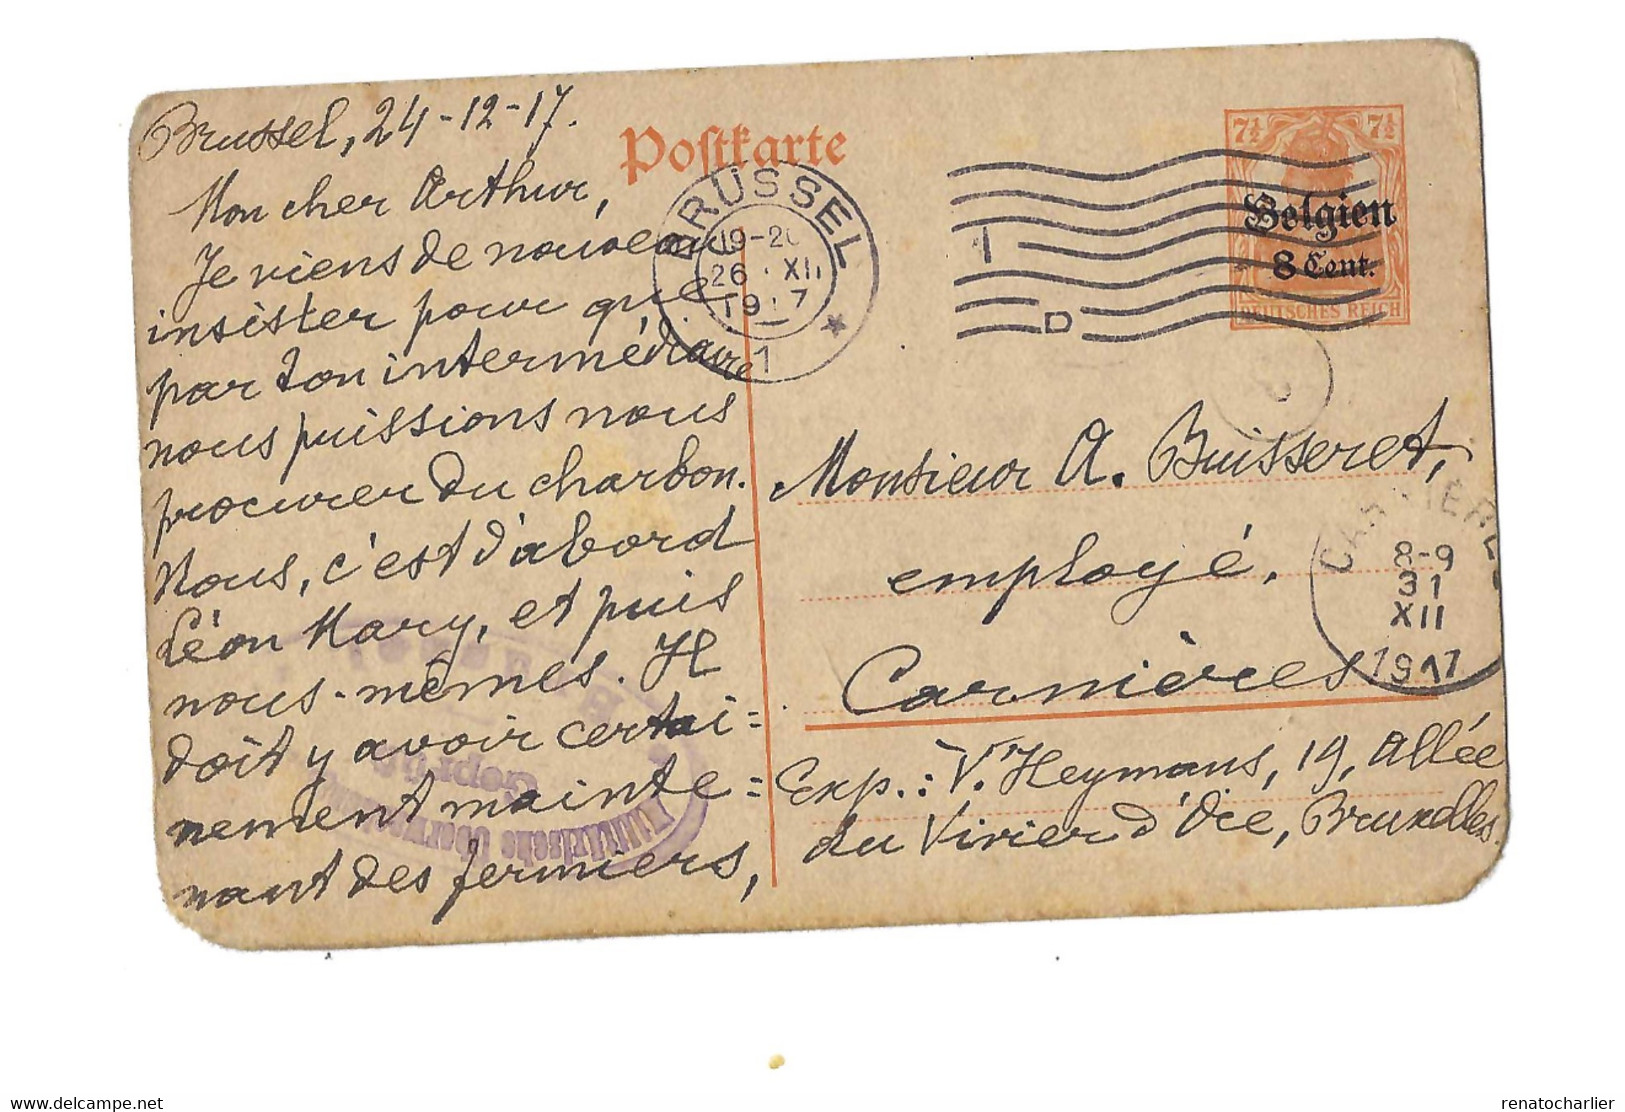 Brussel, 24-12-17.
Mon cher Arthur,
Je viens de nouveau
insister pour que
par ton intermédiaire
nous puissions nous
procurer du charbon.
Nous, c'est d'abord
Léon Mary, et puis
nous-mêmes. Il
doit y avoir certai=
nement mainte=
nant des fermiers,
Postkarte
BRÜSSEL
19-20
26.XII
1917
1
D
7½ 7½
Belgien
8 Cent.
DEUTSCHES REICH
Monsieur A. Buisseret,
employé.
Carnières
CARNIÈRES
8-9
31
XII
1917
Exp.: V. Heymans, 19, Allée
du Vivier d'Oie, Bruxelles.
Militärische
Geprüft
delcampe.net
renatocharlier